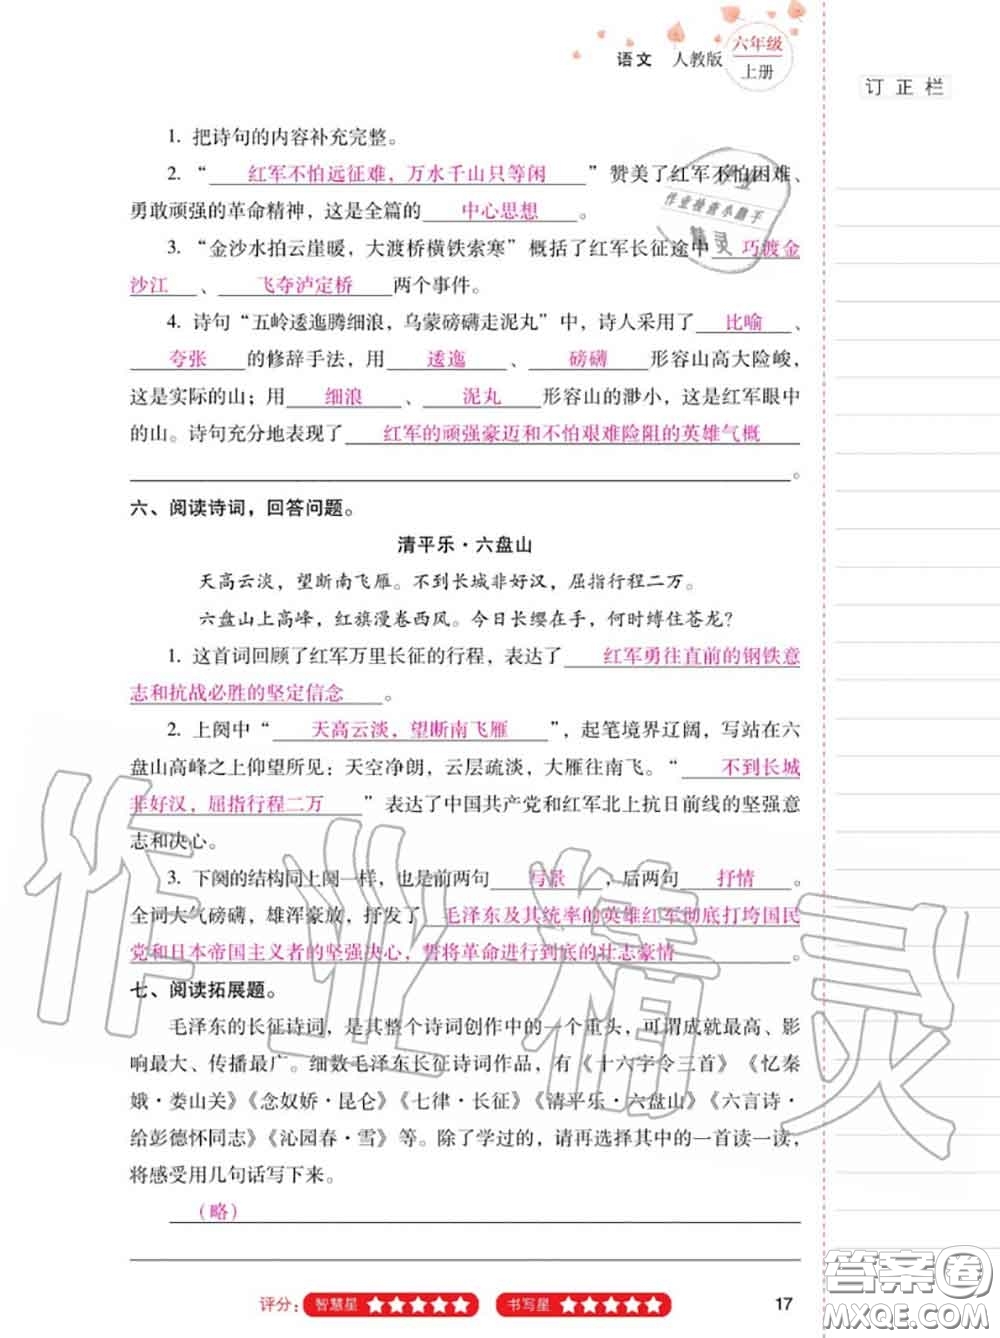 语文 人教版 六年级
上册
订正栏
1. 把诗句的内容补充完整。
2. “ 红军不怕远征难，万水千山只等闲 ”赞美了红军不怕困难、
勇敢顽强的革命精神，这是全篇的 中心思想 。
3. “金沙水拍云崖暖，大渡桥横铁索寒”概括了红军长征途中 巧渡金
沙江 、 飞夺泸定桥 两个事件。
4. 诗句“五岭逶迤腾细浪，乌蒙磅礴走泥丸”中，诗人采用了 比喻 、
夸张 的修辞手法，用 逶迤 、 磅礴 形容山高大险峻，
这是实际的山；用 细浪 、 泥丸 形容山的渺小，这是红军眼中
的山。诗句充分地表现了 红军的顽强豪迈和不怕艰难险阻的英雄气概
。
六、阅读诗词，回答问题。
清平乐·六盘山
天高云淡，望断南飞雁。不到长城非好汉，屈指行程二万。
六盘山上高峰，红旗漫卷西风。今日长缨在手，何时缚住苍龙？
1. 这首词回顾了红军万里长征的行程，表达了 红军勇往直前的钢铁意
志和抗战必胜的坚定信念 。
2. 上阕中“ 天高云淡，望断南飞雁 ”，起笔境界辽阔，写站在六
盘山高峰之上仰望所见：天空净朗，云层疏淡，大雁往南飞。“ 不到长城
非好汉，屈指行程二万 ”表达了中国共产党和红军北上抗日前线的坚强意
志和决心。
3. 下阕的结构同上阕一样，也是前两句 写景 ，后两句 抒情 。
全词大气磅礴，雄浑豪放，抒发了 毛泽东及其统率的英雄红军彻底打垮国民
党和日本帝国主义者的坚强决心，誓将革命进行到底的壮志豪情 。
七、阅读拓展题。
毛泽东的长征诗词，是其整个诗词创作中的一个重头，可谓成就最高、影
响最大、传播最广。细数毛泽东长征诗词作品，有《十六字令三首》《忆秦
娥·娄山关》《念奴娇·昆仑》《七律·长征》《清平乐·六盘山》《六言诗·
给彭德怀同志》《沁园春·雪》等。除了学过的，请再选择其中的一首读一读，
将感受用几句话写下来。
（略）
评分： 智慧星 ★★★★★ 书写星 ★★★★★
17
作业精灵
作业检查小助手
精灵
答案圈
MXQE.COM